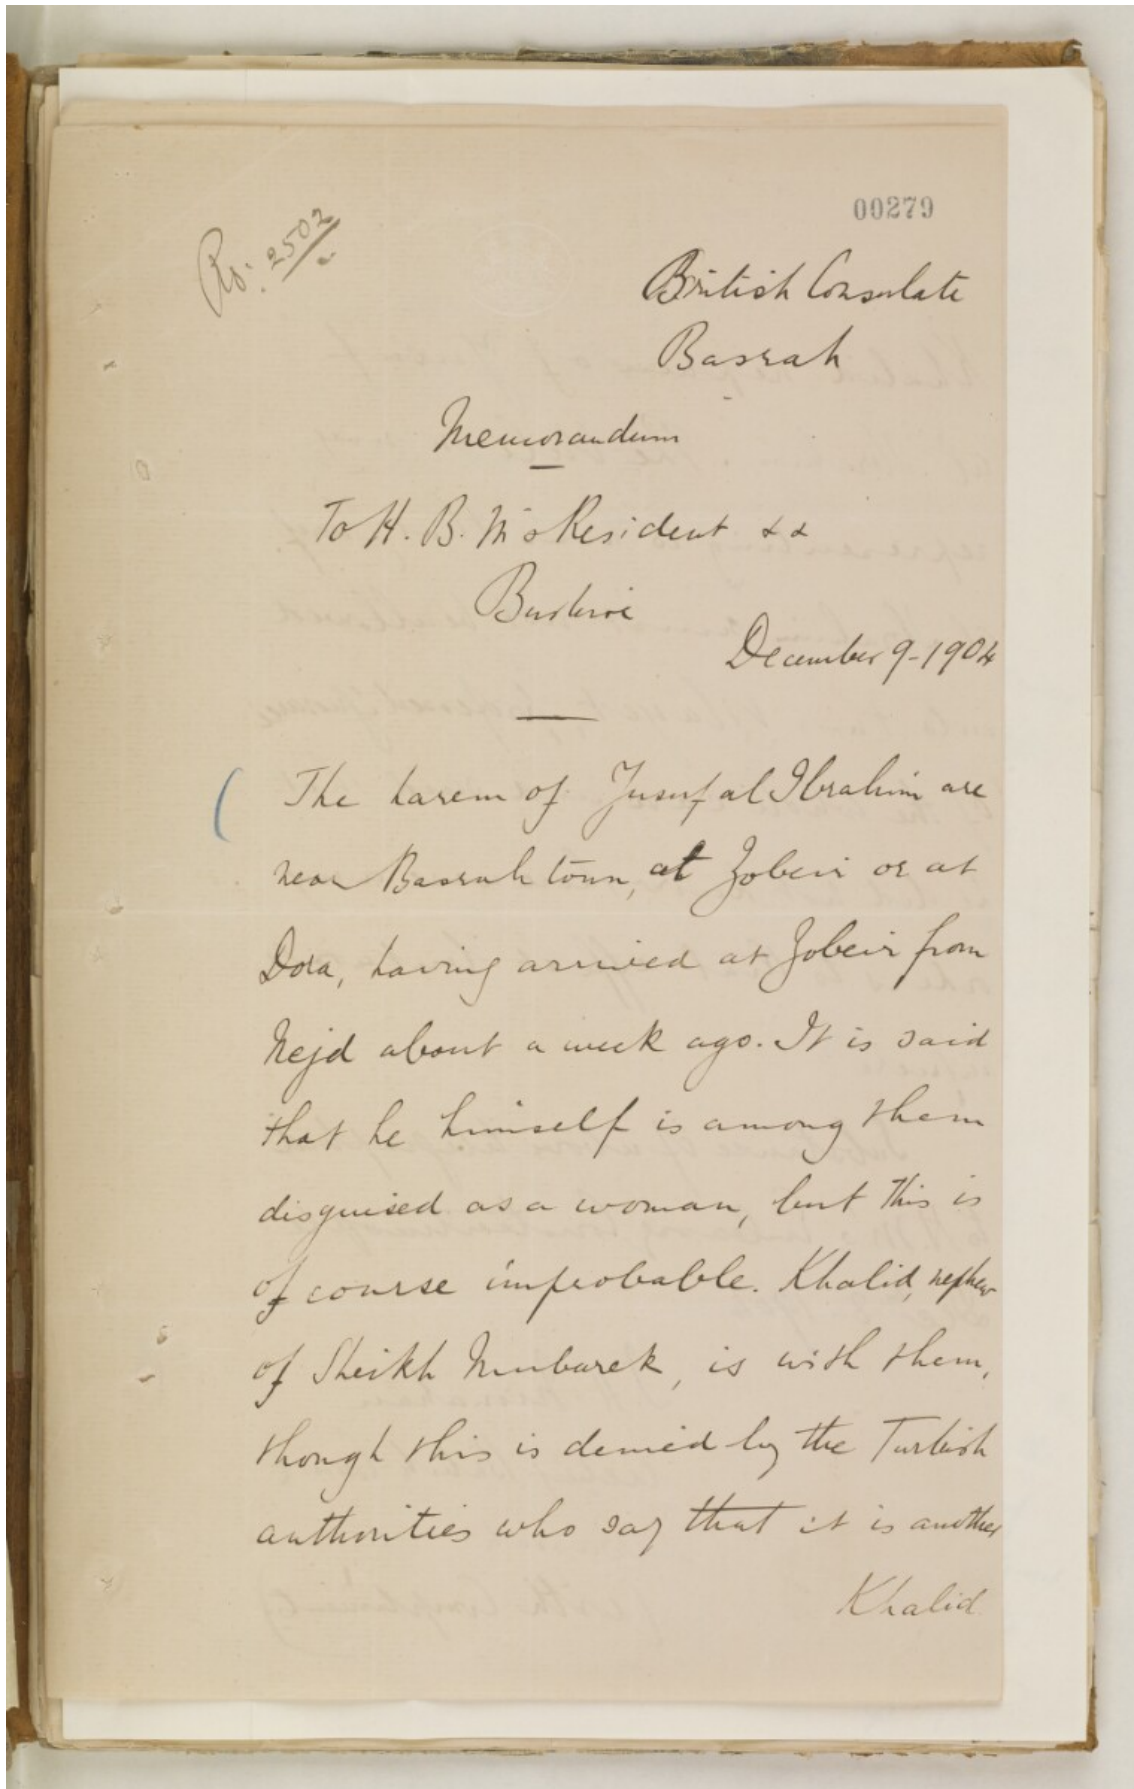 00279
Ro: 2502
British Consulate
Basrah
Memorandum
To H. B. M's Resident &&
Bushire
December 9-1904
The harem of Yusuf al Ibrahim are
near Basrah town, at Zobeir or at
Dora, having arrived at Zobeir from
Nejd about a week ago. It is said
that he himself is among them
disguised as a woman, but this is
of course improbable. Khalid, nephew
of Sheikh Mubarek, is with them,
though this is denied by the Turkish
authorities who say that it is another
Khalid